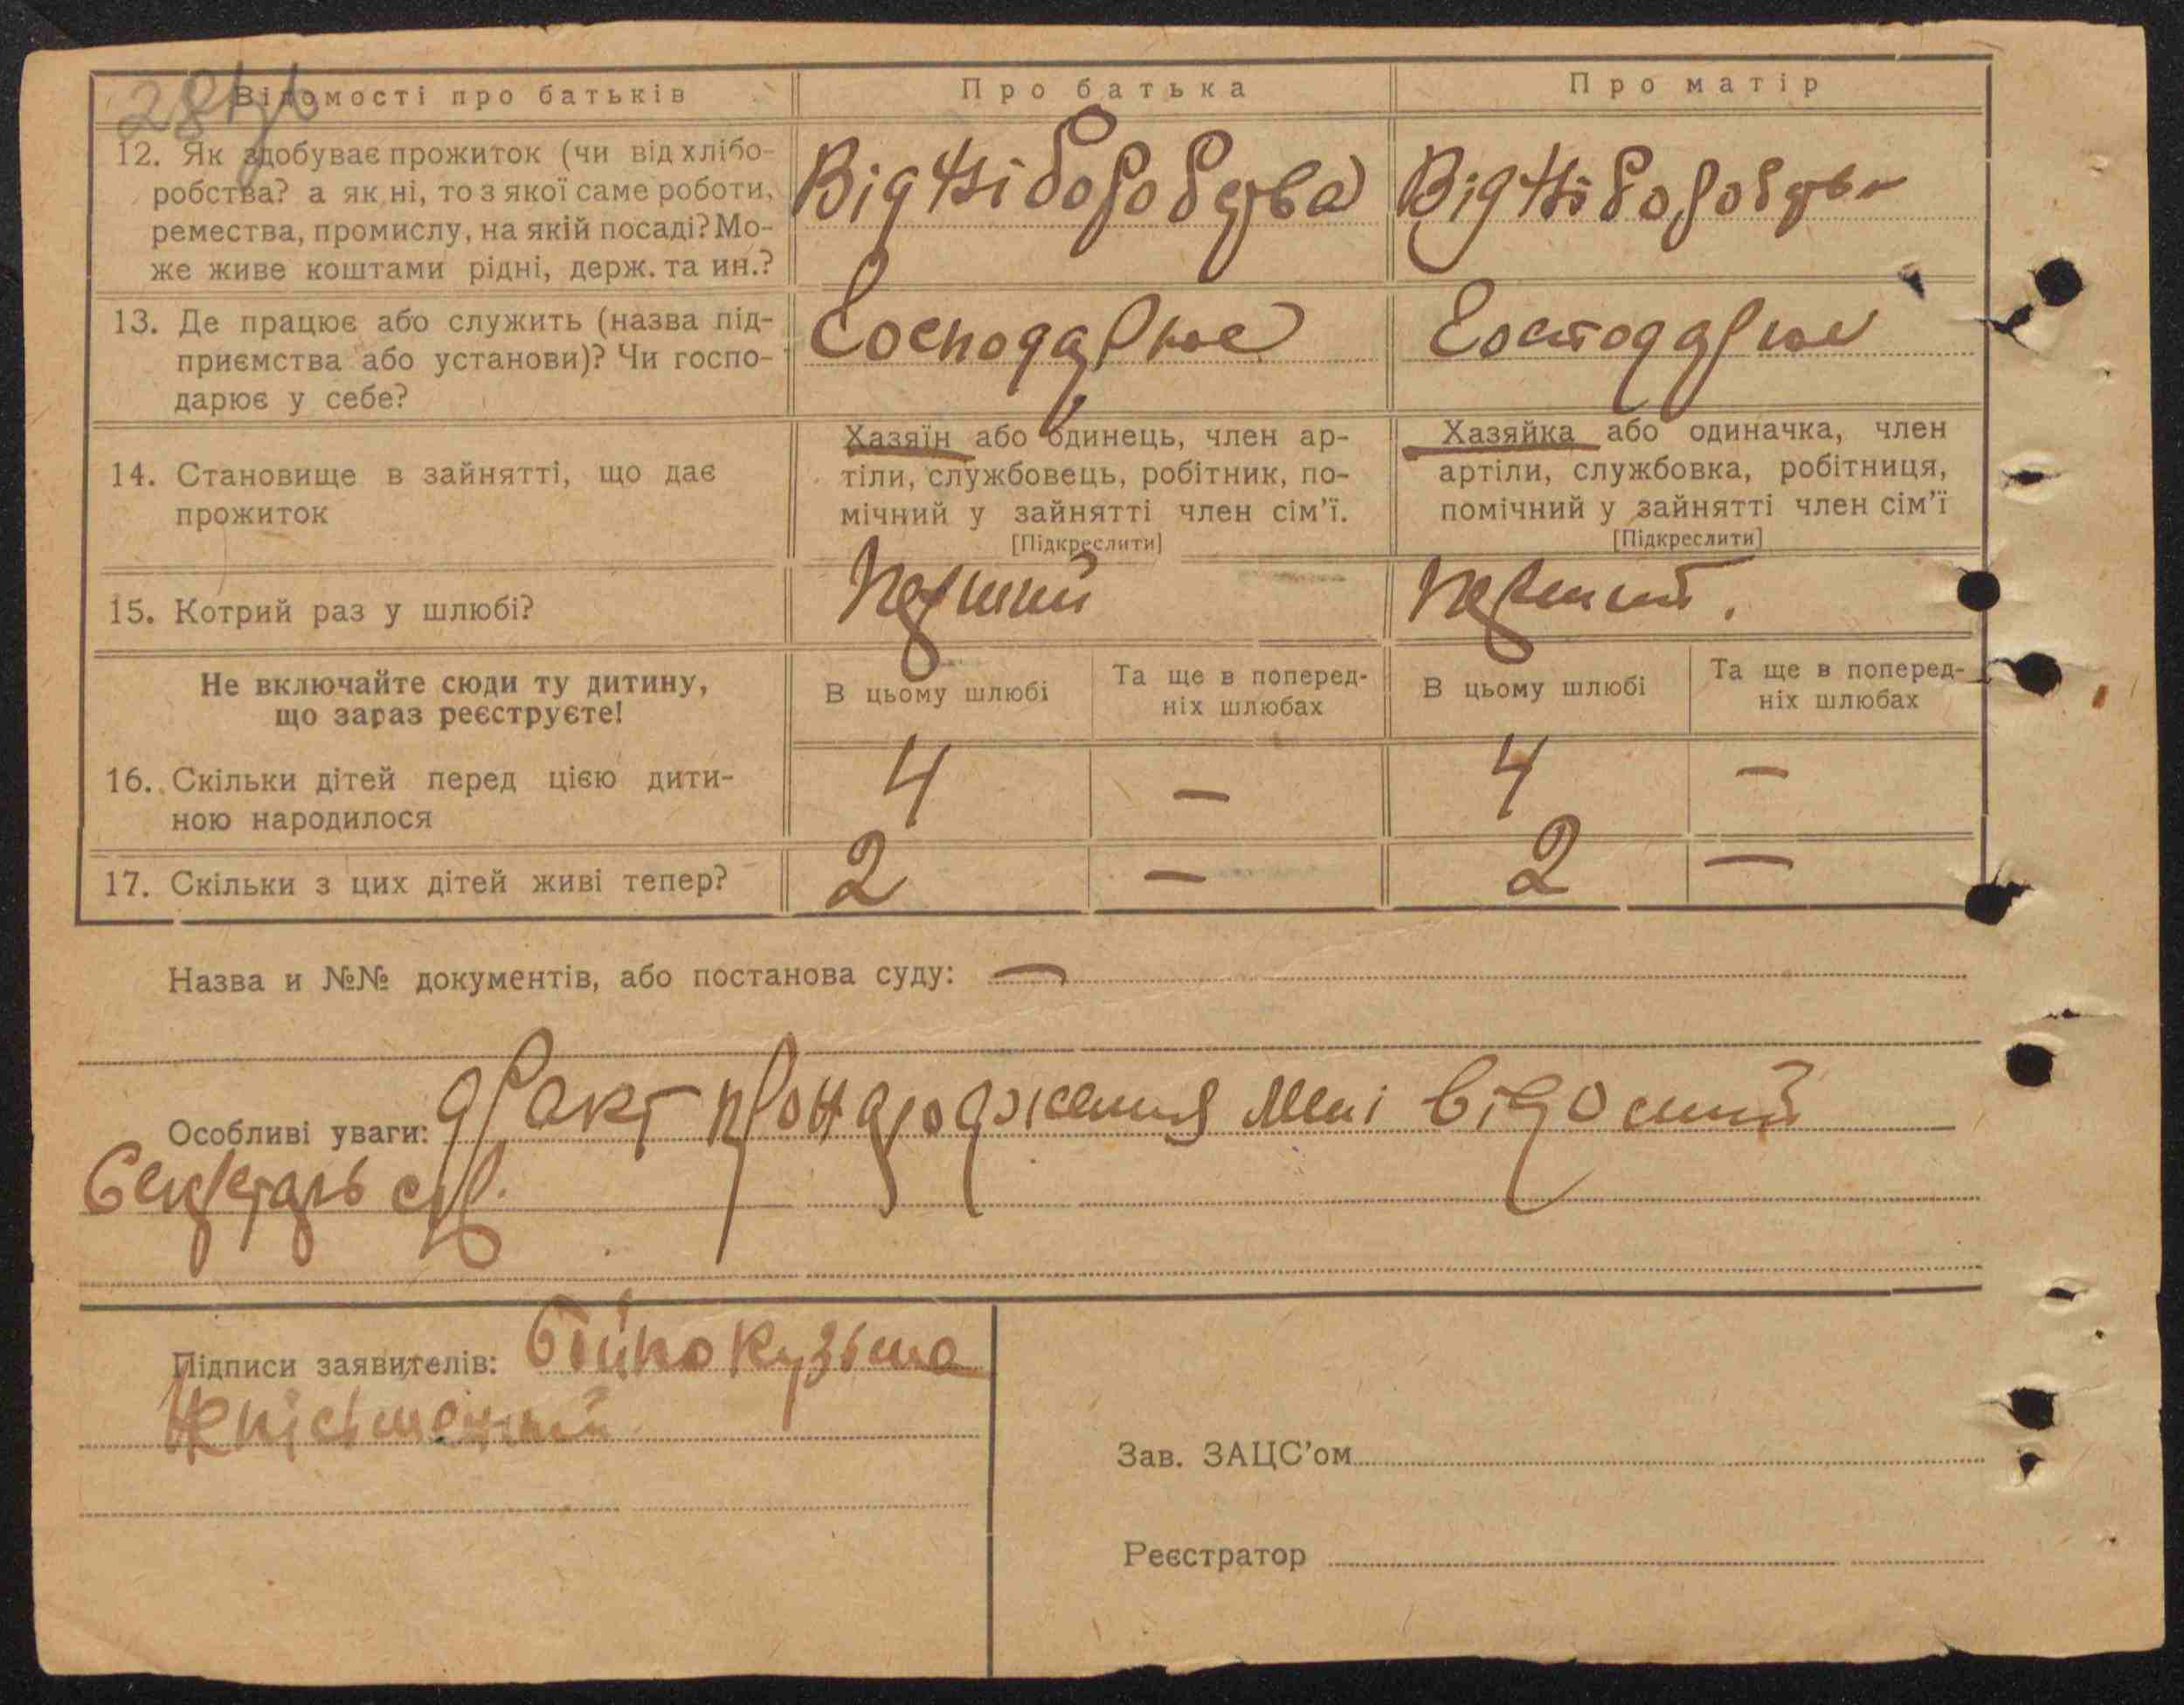 Відомості про батьків
Про батька
Про матір
12. Як здобуває прожиток (чи від хлібо-
робства? а як ні, то з якої саме роботи,
ремества, промислу, на якій посаді? Мо-
же живе коштами рідні, держ. та ин.?
Від хліборобства
Від хліборобства
13. Де працює або служить (назва під-
приємства або установи)? Чи госпо-
дарює у себе?
Господарює
Господарює
14. Становище в зайнятті, що дає
прожиток
Хазяїн або одинець, член ар-
тіли, службовець, робітник, по-
мічний у зайнятті член сім'ї.
[Підкреслити]
Хазяйка або одиначка, член
артіли, службовка, робітниця,
помічний у зайнятті член сім'ї
[Підкреслити]
15. Котрий раз у шлюбі?
Перший
Перший.
Не включайте сюди ту дитину,
що зараз реєструєте!
В цьому шлюбі
Та ще в поперед-
ніх шлюбах
В цьому шлюбі
Та ще в поперед-
ніх шлюбах
16. Скільки дітей перед цією дити-
ною народилося
4 — 4 —
17. Скільки з цих дітей живі тепер?
2 — 2 —
Назва и №№ документів, або постанова суду: —
Особливі уваги: факт пронародження мені відомий
Секретарь с/р.
Підписи заявителів: Бойко Кузьма
Неписьменний
Зав. ЗАЦС'ом
Реєстратор